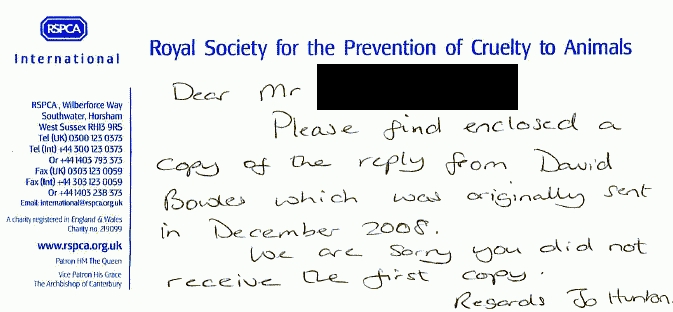 RSPCA
International
Royal Society for the Prevention of Cruelty to Animals
RSPCA, Wilberforce Way
Southwater, Horsham
West Sussex RH13 9RS
Tel (UK) 0300 123 0373
Tel (Int) +44 300 123 0373
Or +44 1403 793 373
Fax (UK) 0303 123 0059
Fax (Int) +44 303 123 0059
Or +44 1403 238 373
Email: international@rspca.org.uk
A charity registered in England & Wales
Charity no. 219099
www.rspca.org.uk
Patron HM The Queen
Vice Patron His Grace
The Archbishop of Canterbury
Dear Mr
Please find enclosed a
copy of the reply from David
Bowles which was originally sent
in December 2008.
We are sorry you did not
receive the first copy.
Regards Jo